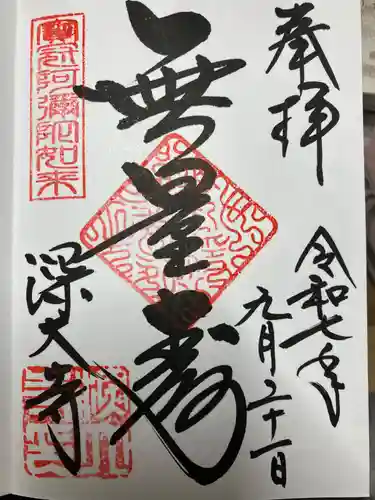 奉拝
令和七年
月二十一日
無量壽
寶冠阿彌陀如来
深大寺